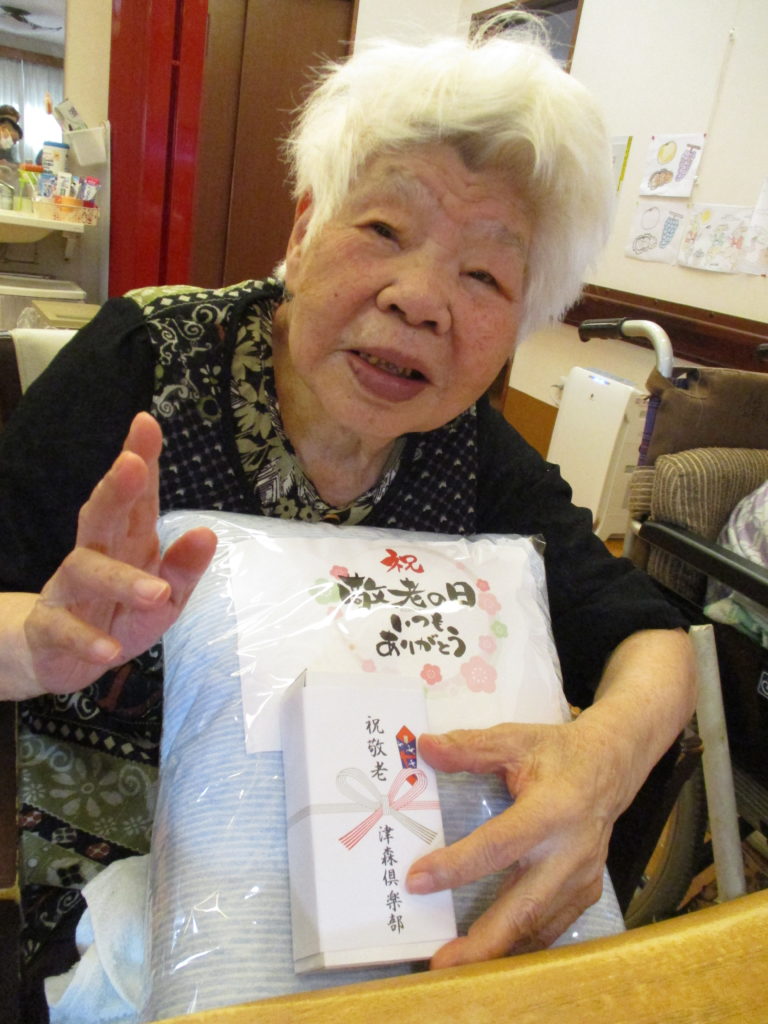 祝
敬老の日
いつも
ありがとう
祝敬老
津森倶楽部